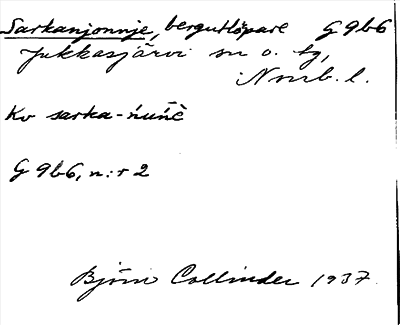 Sarkanjonnje, bergutlöpare G 9b6
Jukkasjärvi sn o. tg,
Nrrb. l.
Kv sarka-ńuńē̆
G 9b6, n:r 2
Björn Collinder 1937